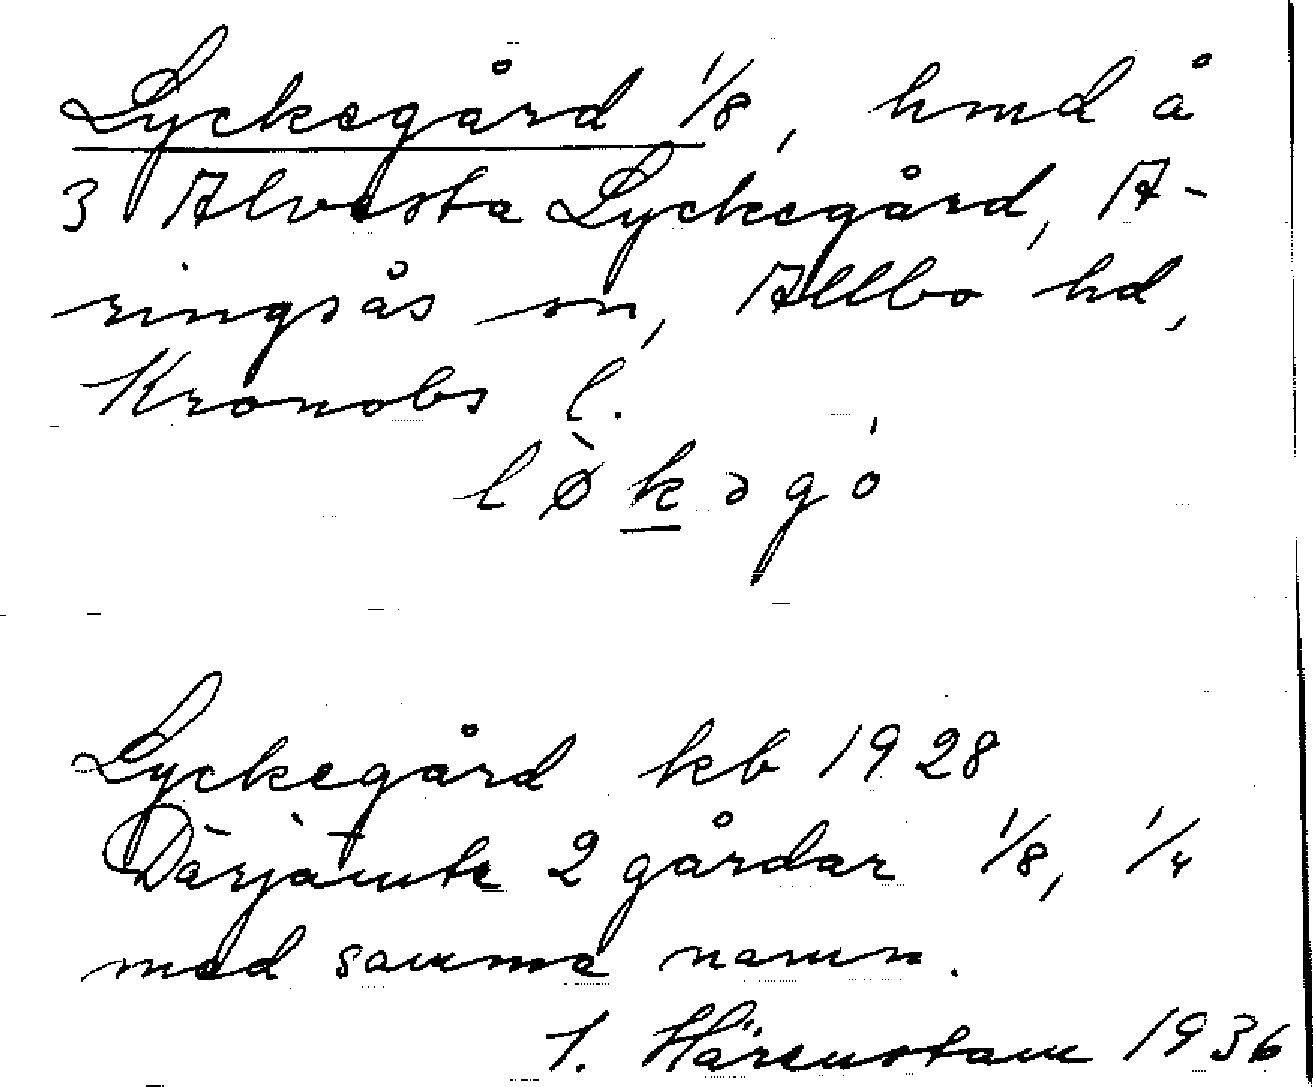 Lyckegård 1/8, hmd å
3 Alvesta Lyckegård, A-
ringsås sn, Allbo hd,
Kronobs l.
lø̀kəgó
Lyckegård kb 1928
Därjämte 2 gårdar 1/8, 1/4
med samma namn.
Härenstam 1936